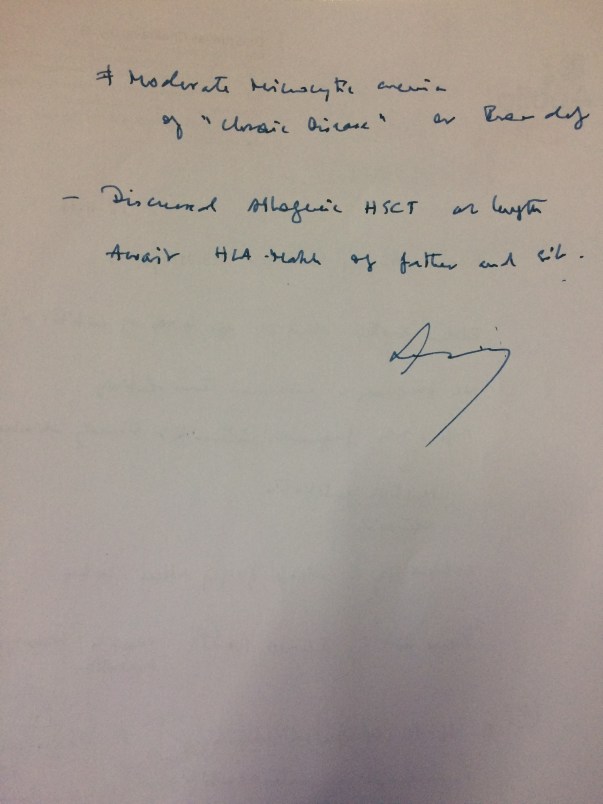 # Moderate Microcytic anemia
of "Chronic Disease" or
- Discussed Allogenic HSCT at length
Await HLA-Match of father and sib.